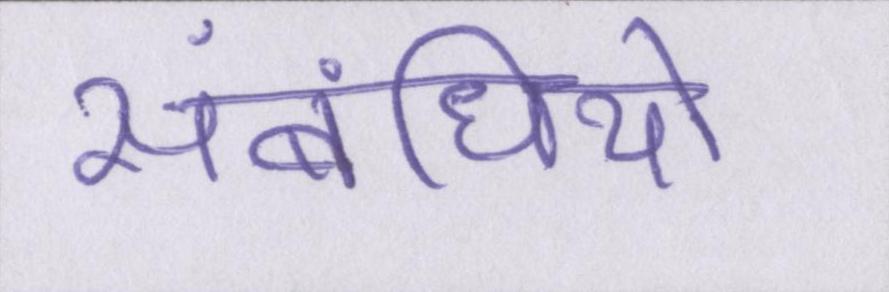 संबंधियो